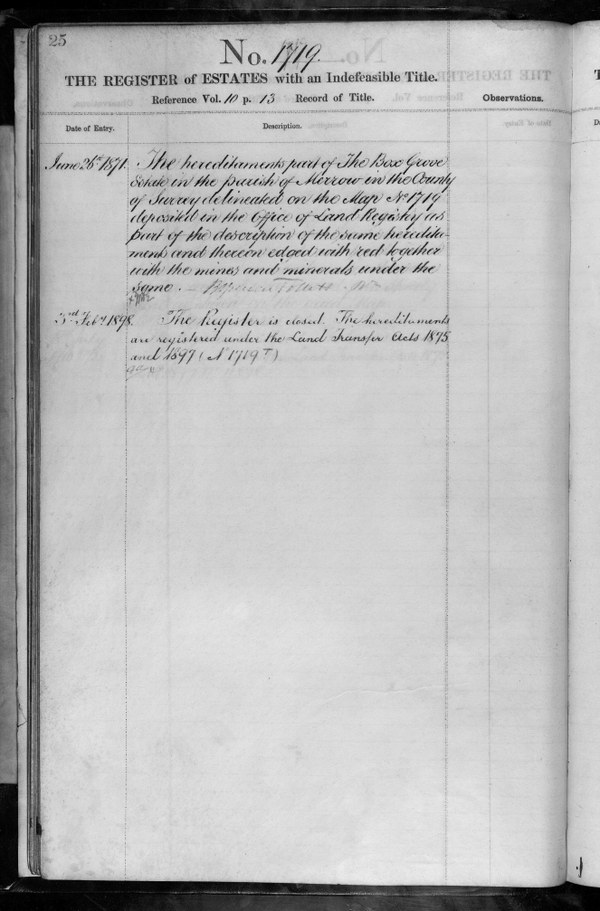 25
No. 1719.
THE REGISTER of ESTATES with an Indefeasible Title.
Reference Vol. 10 p. 13 Record of Title.
Observations.
Date of Entry.
Description.
June 26th 1871.
The hereditaments part of The Box Grove
Estate in the parish of Merrow in the County
of Surrey delineated on the Map No 1719
deposited in the Office of Land Registry as
part of the description of the same heredita-
ments and thereon edged with red together
with the mines and minerals under the
same.
3rd Feby 1898.
The Register is closed. The hereditaments
are registered under the Land Transfer Acts 1875
and 1897 (No 1719 T)